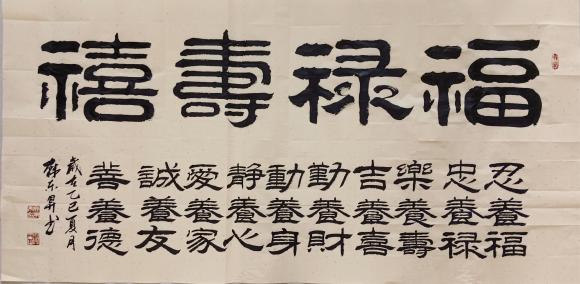 福禄壽禧
忍養福
忠養禄
樂養壽
吉養喜
勤養財
動養身
静養心
愛養家
誠養友
善養德
歲在乙丑夏月
东昇书